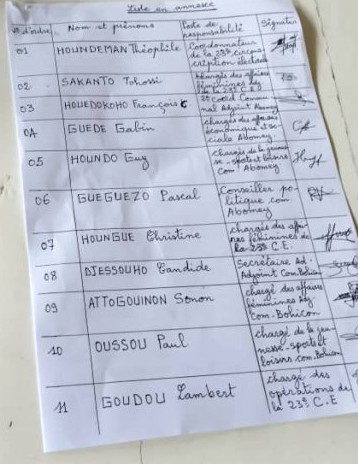 Liste en annexe
N° d'ordre Nom et prénoms Poste de responsabilité Signature
01 HOUNDEMAN Théophile Coordonnateur de la 23è circonscription électorale
02 SAKANTO Tohossi chargés des affaires féminines de la 23è C.E
03 HOUEDOKOHO François Coord Communal Adjoint Abomey
04 GUEDE Gabin chargés des affaires économique et sociale Abomey
05 HOUNDO Guy chargés de la jeunesse-sports et loisirs com. Abomey
06 GUEGUEZO Pascal Conseiller politique com Abomey
07 HOUNGUE Christine chargés des affaires féminines de la 23è C.E.
08 DJESSOUHO Candide Secrétaire Ad. Adjoint Com.Bohicon
09 ATTOGOUINON Sonon chargé des affaires féminines Com. Bohicon
10 OUSSOU Paul chargé de la jeunesse-sports et loisirs com. Bohicon
11 GOUDOU Lambert chargé des opérations de la 23è C.E